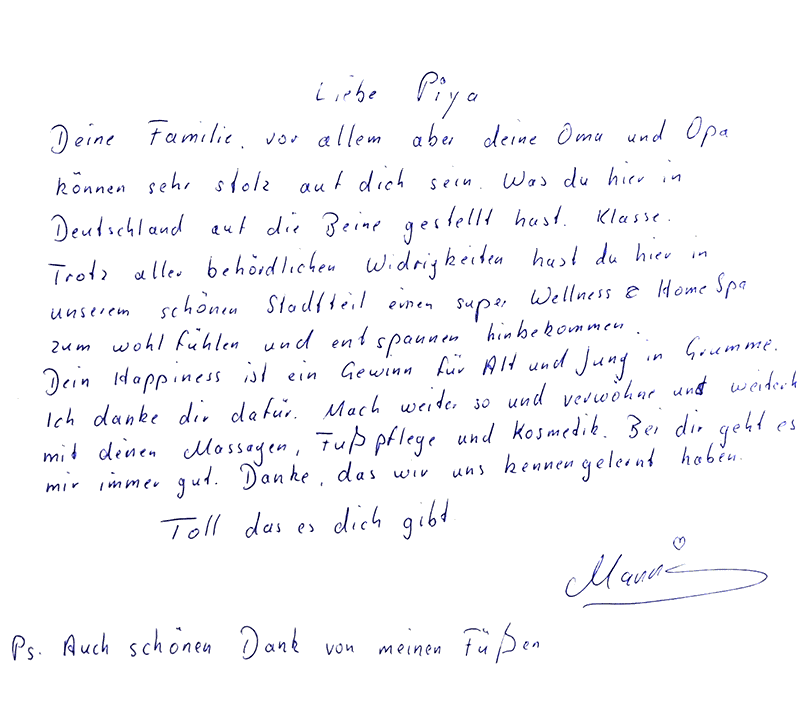 Liebe Piya
Deine Familie, vor allem aber deine Oma und Opa
können sehr stolz auf dich sein. Was du hier in
Deutschland auf die Beine gestellt hast. Klasse.
Trotz aller behördlichen Widrigkeiten hast du hier in
unserem schönen Stadtteil einen super Wellness & Home Spa
zum wohl fühlen und entspannen hinbekommen.
Dein Happiness ist ein Gewinn für Alt und Jung in Grumme.
Ich danke dir dafür. Mach weiter so und verwöhne uns weiterh
mit deinen Massagen, Fußpflege und Kosmetik. Bei dir geht es
mir immer gut. Danke, das wir uns kennengelernt haben.
Toll das es dich gibt
Manni
Ps. Auch schönen Dank von meinen Füßen